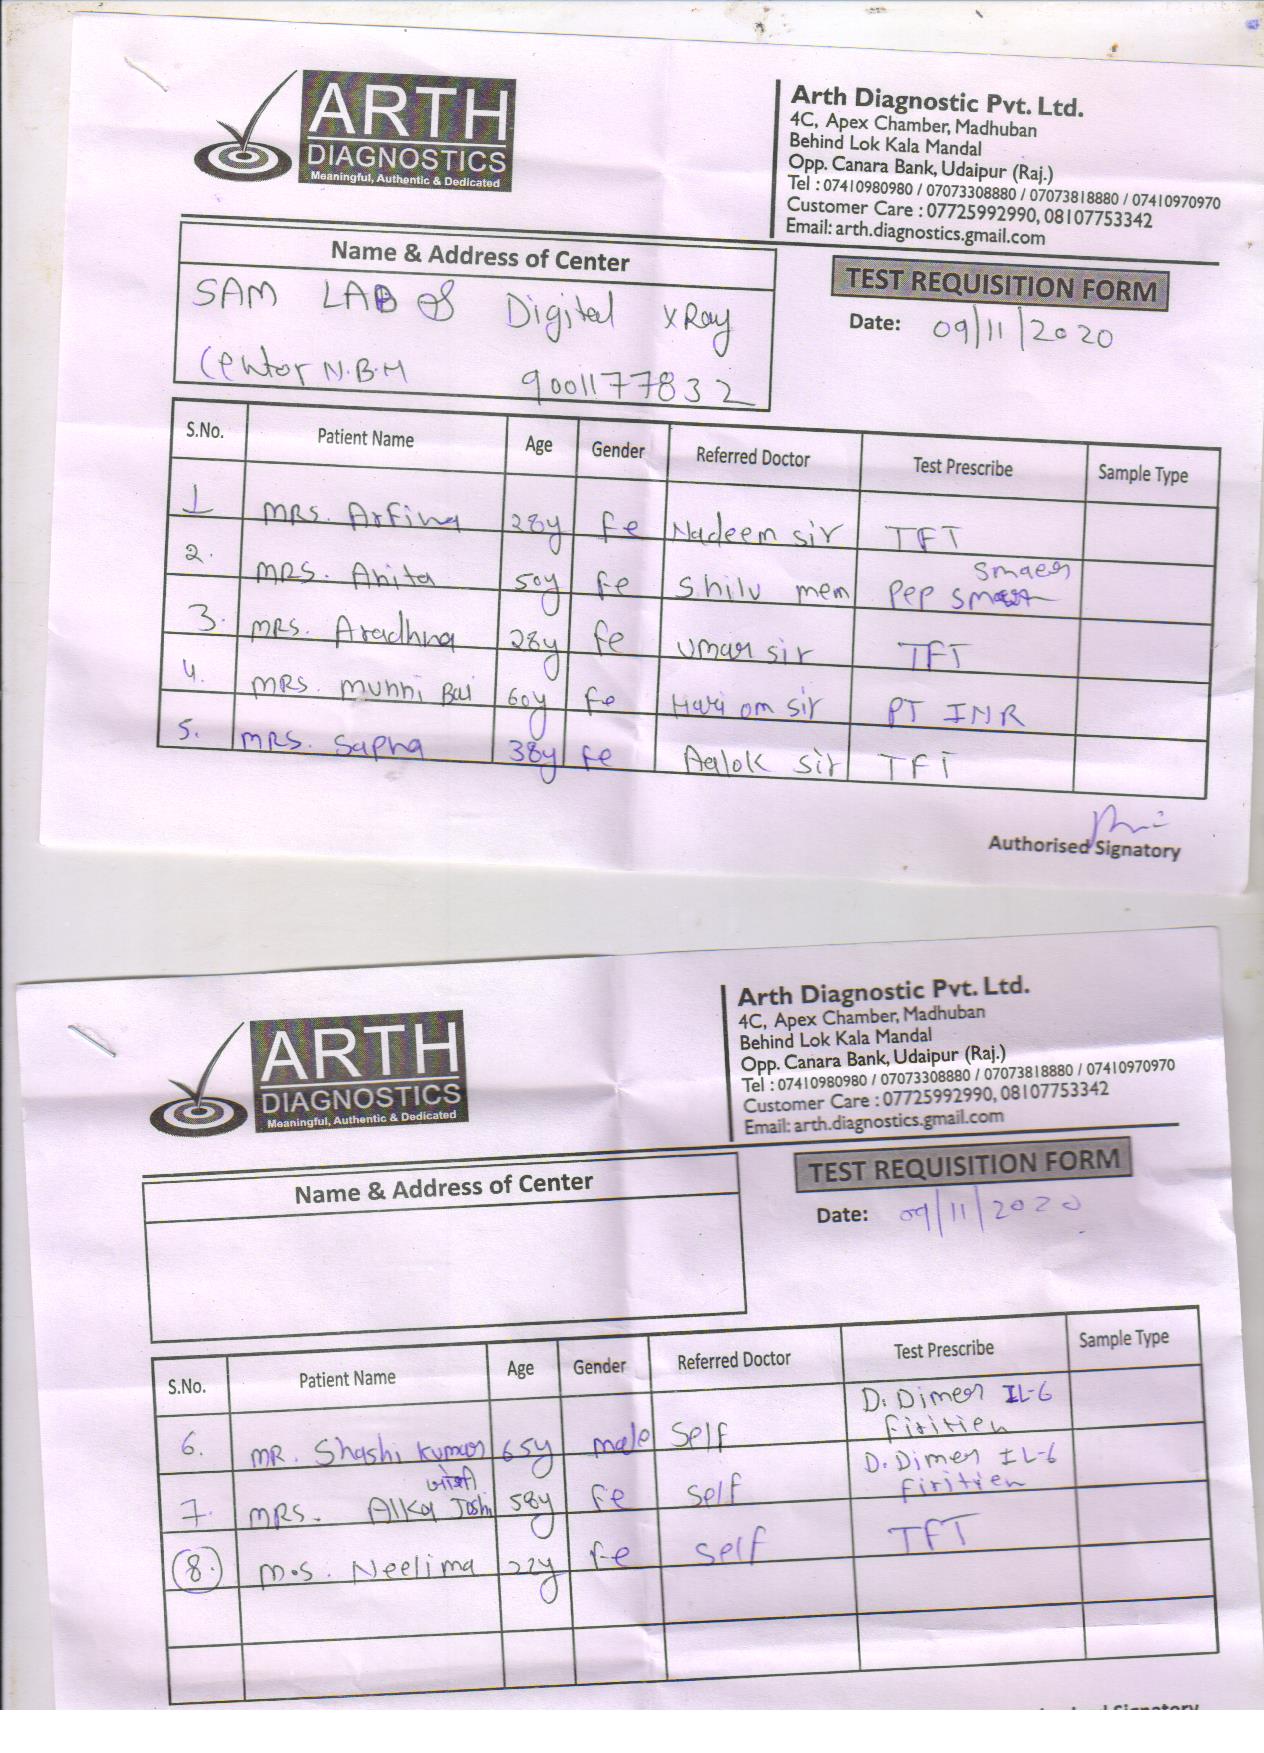 ARTH
DIAGNOSTICS
Meaningful, Authentic & Dedicated
Arth Diagnostic Pvt. Ltd.
4C, Apex Chamber, Madhuban
Behind Lok Kala Mandal
Opp. Canara Bank, Udaipur (Raj.)
Tel : 07410980980 / 07073308880 / 07073818880 / 07410970970
Customer Care : 07725992990, 08107753342
Email: arth.diagnostics.gmail.com
Name & Address of Center
SAM LAB & Digital X Ray
Centor N.B.H 9001177832
TEST REQUISITION FORM
Date: 09/11/2020
S.No. Patient Name Age Gender Referred Doctor Test Prescribe Sample Type
1 MRS. Arfina 28y Fe Nadeem sir TFT
2. MRS. Anita 50y Fe Shilu mem Pep Smaer
3. MRS. Aradhna 28y Fe Umar sir TFT
4. MRS. Munni Bai 60y Fe Hari om sir PT INR
5. MRS. Sapna 38y Fe Aalok sir TFT
Authorised Signatory
ARTH
DIAGNOSTICS
Meaningful, Authentic & Dedicated
Arth Diagnostic Pvt. Ltd.
4C, Apex Chamber, Madhuban
Behind Lok Kala Mandal
Opp. Canara Bank, Udaipur (Raj.)
Tel : 07410980980 / 07073308880 / 07073818880 / 07410970970
Customer Care : 07725992990, 08107753342
Email: arth.diagnostics.gmail.com
Name & Address of Center
TEST REQUISITION FORM
Date: 09/11/2020
S.No. Patient Name Age Gender Referred Doctor Test Prescribe Sample Type
6. MR. Shashi Kumar 65y male Self D. Dimer IL-6
Firitien
7. MRS. Alka Joshi जोशी 58y Fe Self D. Dimer IL-6
Firitien
8. M.S. Neelima 22y Fe Self TFT
Signatory